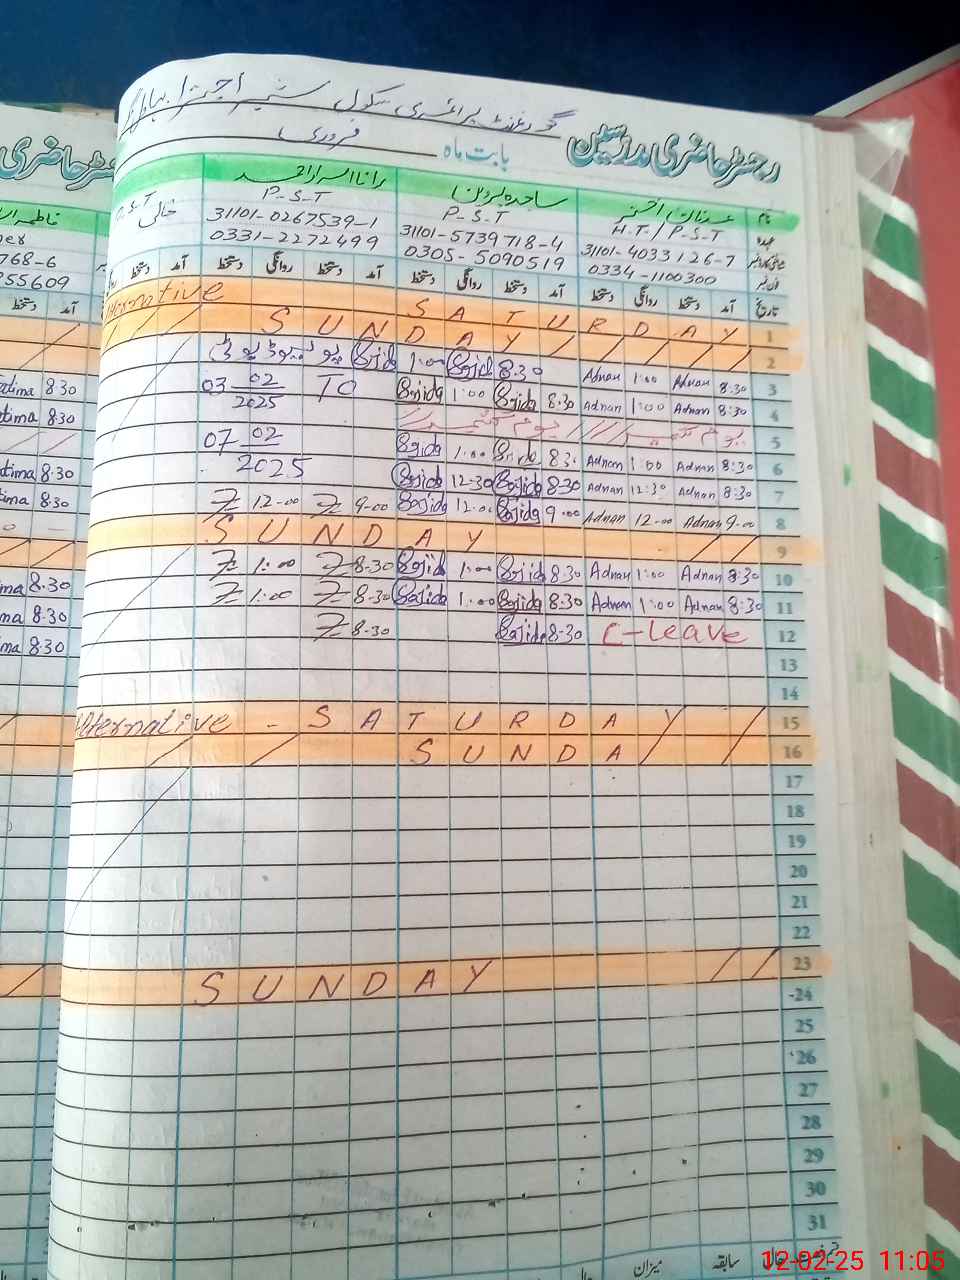 گورنمنٹ پرائمری سکول
رجسٹر حاضری مدرسین
بابت ماہ فروری
نام عدنان اختر ساجدہ پروین رانا اسرار احمد
عہدہ H.T./P.S.T P-S-T P-S-T P.S.T خالی
31101-4033126-7 31101-5739718-4 31101-0267539-1
0334-1100300 0305-5090519 0331-2272499
تاریخ آمد دستخط روانگی دستخط آمد دستخط روانگی دستخط آمد دستخط روانگی دستخط آمد دستخط
1 Alternative SATURDAY
2 SUNDAY
3 8.30 Adnan 1:00 Adnan 8.30 Sajida 1:00 Sajida پولیو ڈیوٹی
4 8:30 Adnan 1:00 Adnan 8.30 Sajida 1:00 Sajida 03 02/2025 TO
5 یوم کشمیر
6 8:30 Adnan 1:00 Adnan 8.30 Sajida 1:00 Sajida 07 02/2025
7 8:30 Adnan 12:30 Adnan 8.30 Sajida 12-30 Sajida
8 9-00 Adnan 12-00 Adnan 9.00 Sajida 12.00 Sajida 9-00 12-00
9 SUNDAY
10 8:30 Adnan 1:00 Adnan 8.30 Sajida 1:00 Sajida 8-30 1:00
11 8:30 Adnan 1:00 Adnan 8.30 Sajida 1:00 Sajida 8-30 1:00
12 C-Leave 8-30 Sajida 8-30
13
14
15 Alternative - SATURDAY
16 SUNDA
17
18
19
20
21
22
23 SUNDAY
24
25
26
27
28
29
30
31
سابقہ میزان
رجسٹر حاضری
768-6
55609
آمد دستخط
Fatima 8.30
tima 8.30
tima 8.30
8.30
ma 8.30
ma 8.30
ma 8.30
12-02-25 11:05